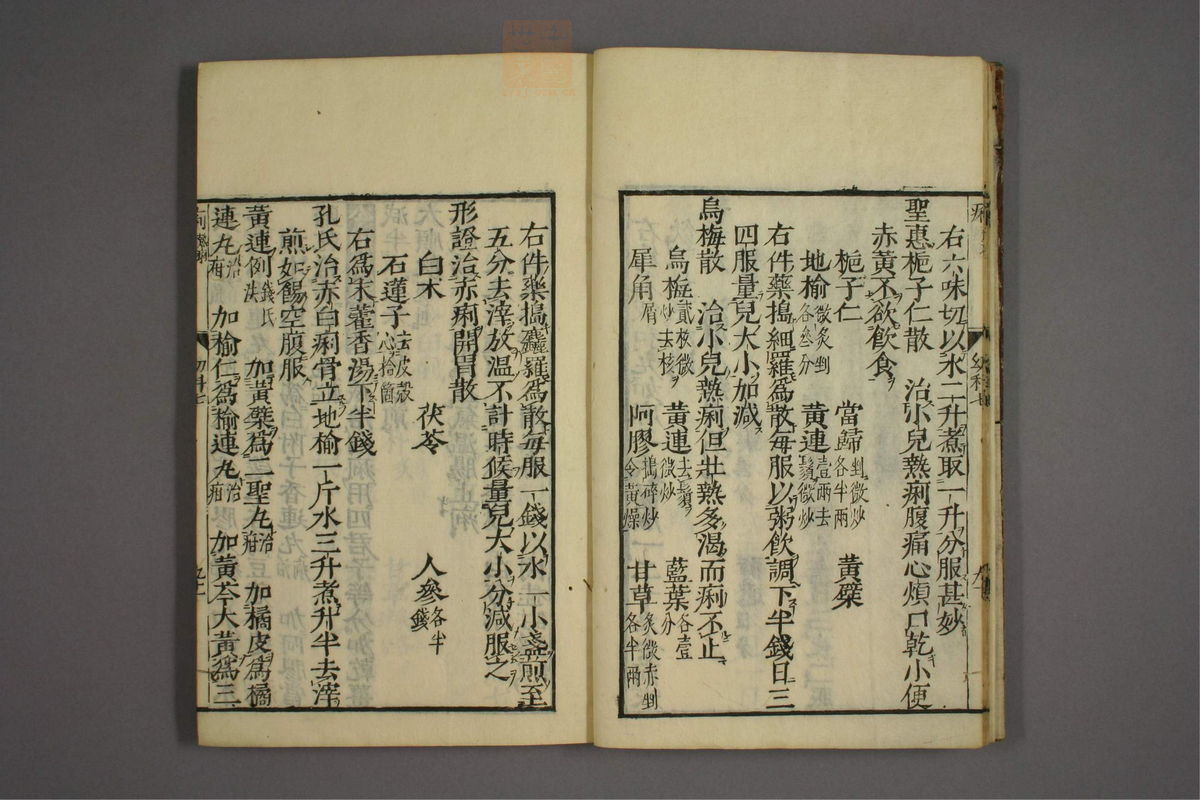 右六味切以水二升煮取一升分服甚妙
聖惠梔子仁散　治小兒熱痢腹痛心煩口乾小便
赤黃不欲飲食
梔子仁　當歸剉微炒各半兩　黃蘗
地榆微炙剉各叁分　黃連壹兩去鬚微炒
右件藥搗細羅爲散每服以粥飲調下半錢日三
四服量兒大小加減
烏梅散　治小兒熱痢但壯熱多渴而痢不止
烏梅貳枚微炒去核　黃連去鬚微炒　藍葉各壹分
犀角屑　阿膠搗碎炒令黃燥　甘草炙微赤剉各半兩
右件藥搗麤羅爲散每服一錢以水一小盞煎至
五分去滓放溫不計時候量兒大小分減服之
形證治赤痢開胃散
白朮　茯苓　人參各半錢
石蓮子去皮殼心拾箇
右爲末藿香湯下半錢
孔氏治赤白痢骨立地榆一斤水三升煮升半去滓
煎如餳空腹服
黃連例錢氏法　加黃蘗爲二聖丸治疳　加橘皮爲橘
連丸治疳　加榆仁爲榆連丸治疳　加黃芩大黃爲三